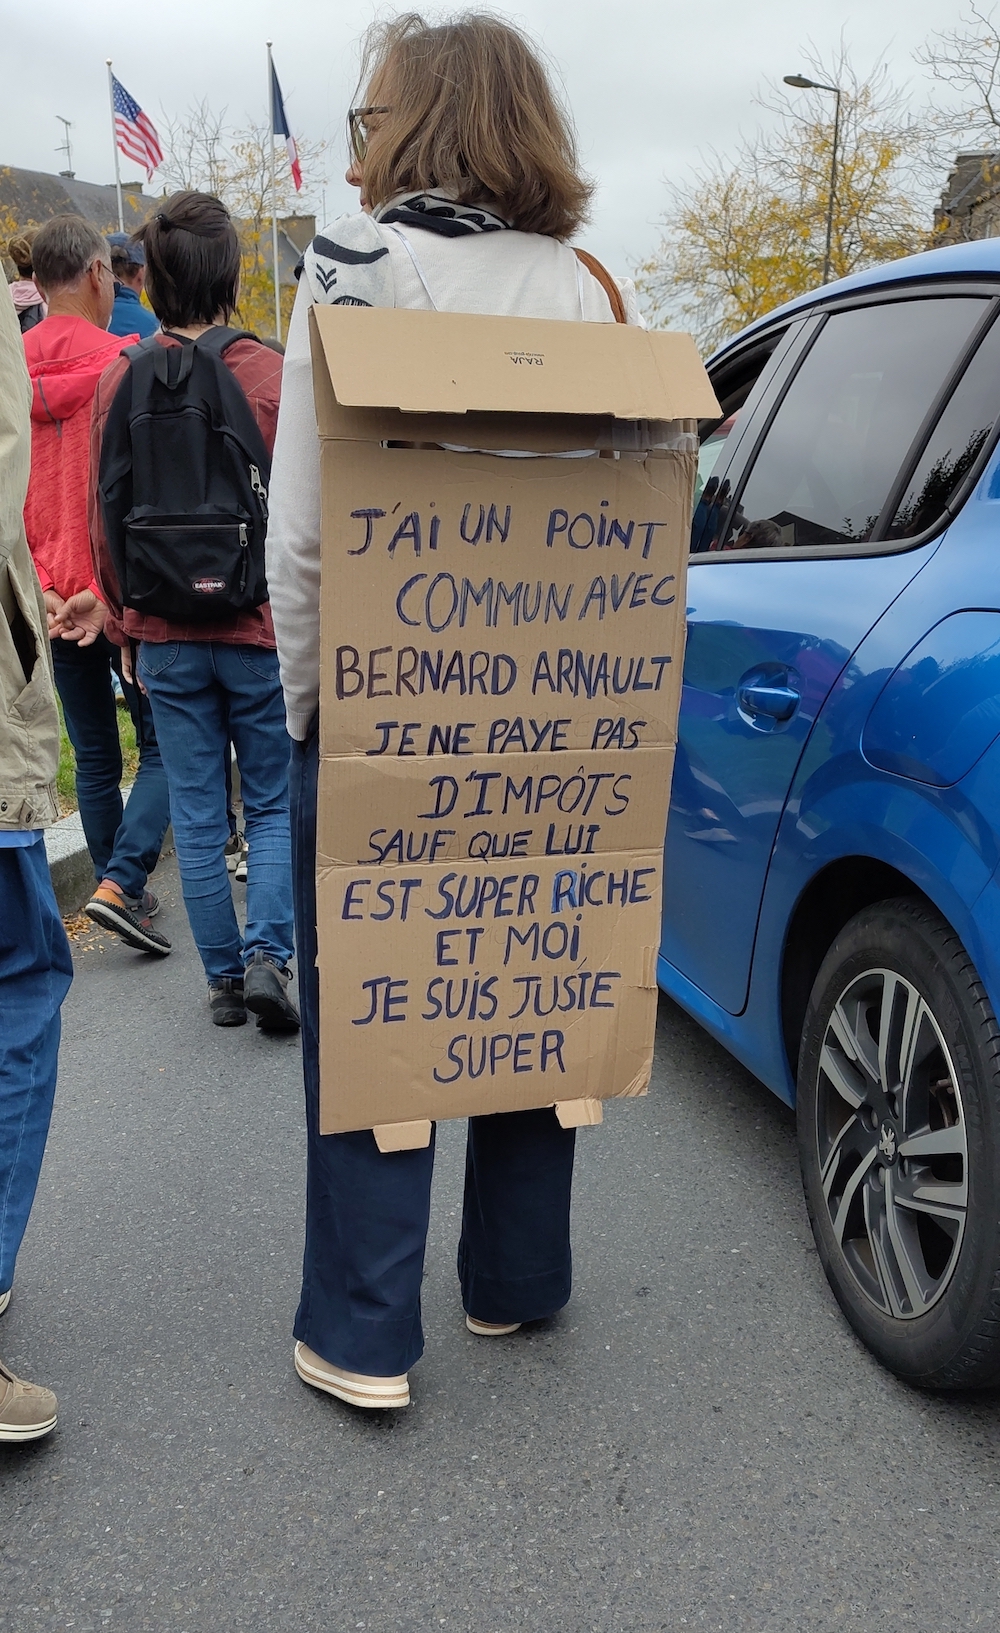 RAJA
J'AI UN POINT
COMMUN AVEC
BERNARD ARNAULT
JE NE PAYE PAS
D'IMPÔTS
SAUF QUE LUI
EST SUPER RICHE
ET MOI
JE SUIS JUSTE
SUPER
EASTPAK